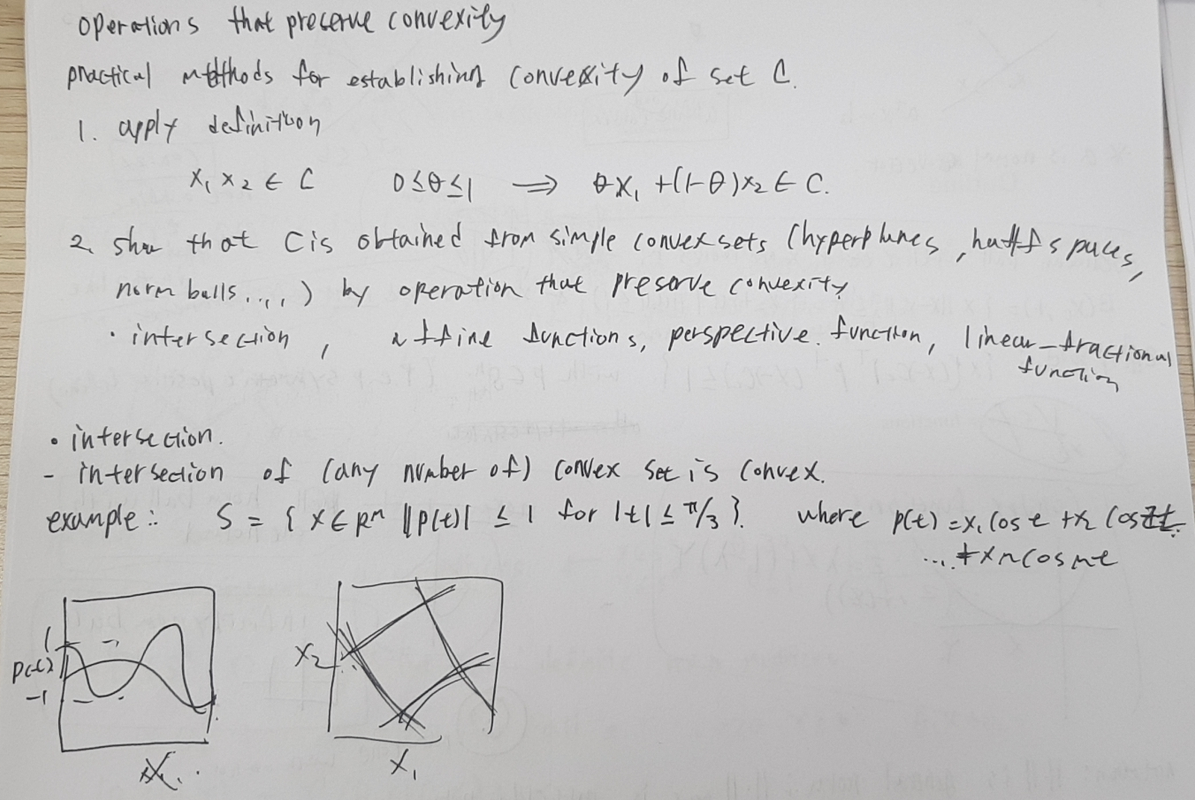 operations that preserve convexity
practical methods for establishing convexity of set C.
1. apply definition
x₁ x₂ ∈ C 0≤θ≤1 ⟹ θx₁ +(1-θ)x₂ ∈ C.
2. show that C is obtained from simple convex sets (hyperplanes, halfspaces,
norm balls....) by operation that preserve convexity
· intersection, affine functions, perspective. function, linear-fractional
function
• intersection.
- intersection of (any number of) convex set is convex.
example: S = { x ∈ Rᵐ ||p(t)| ≤ 1 for |t| ≤ π/3 }. where p(t) = x₁ cos t + x₂ cos 2t.
... + xn cos nt
1
p(t)
-1
x₂
x₁